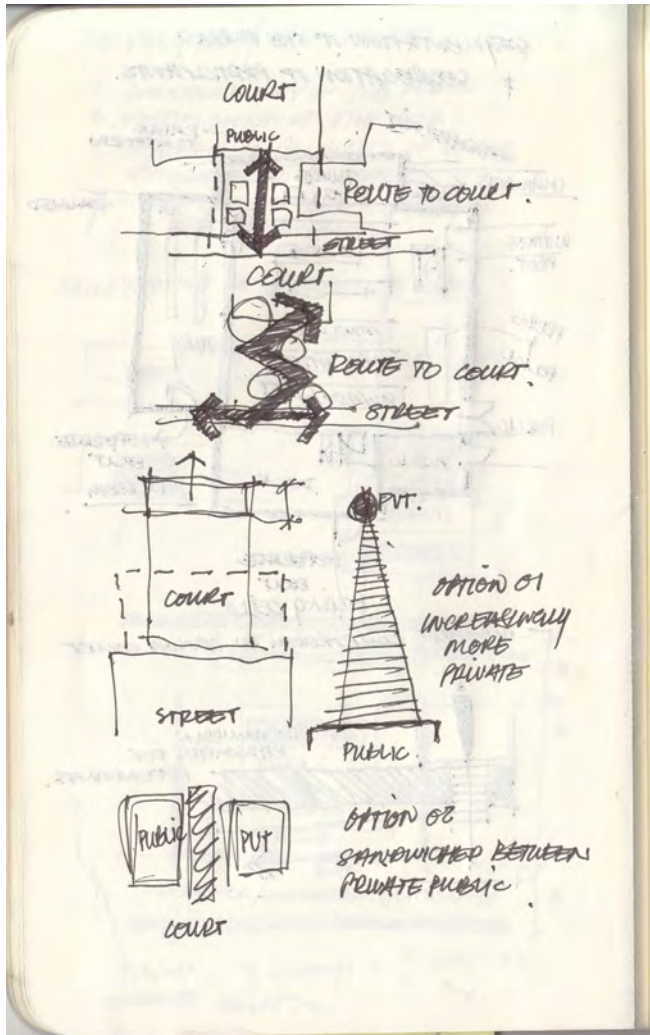 COURT
PUBLIC
ROUTE TO COURT.
STREET
COURT
ROUTE TO COURT.
STREET
PVT.
COURT
OPTION 01
INCREASINGLY
MORE
PRIVATE
STREET
PUBLIC.
PUBLIC
PVT
COURT
OPTION 02
SANDWICHED BETWEEN
PRIVATE PUBLIC.